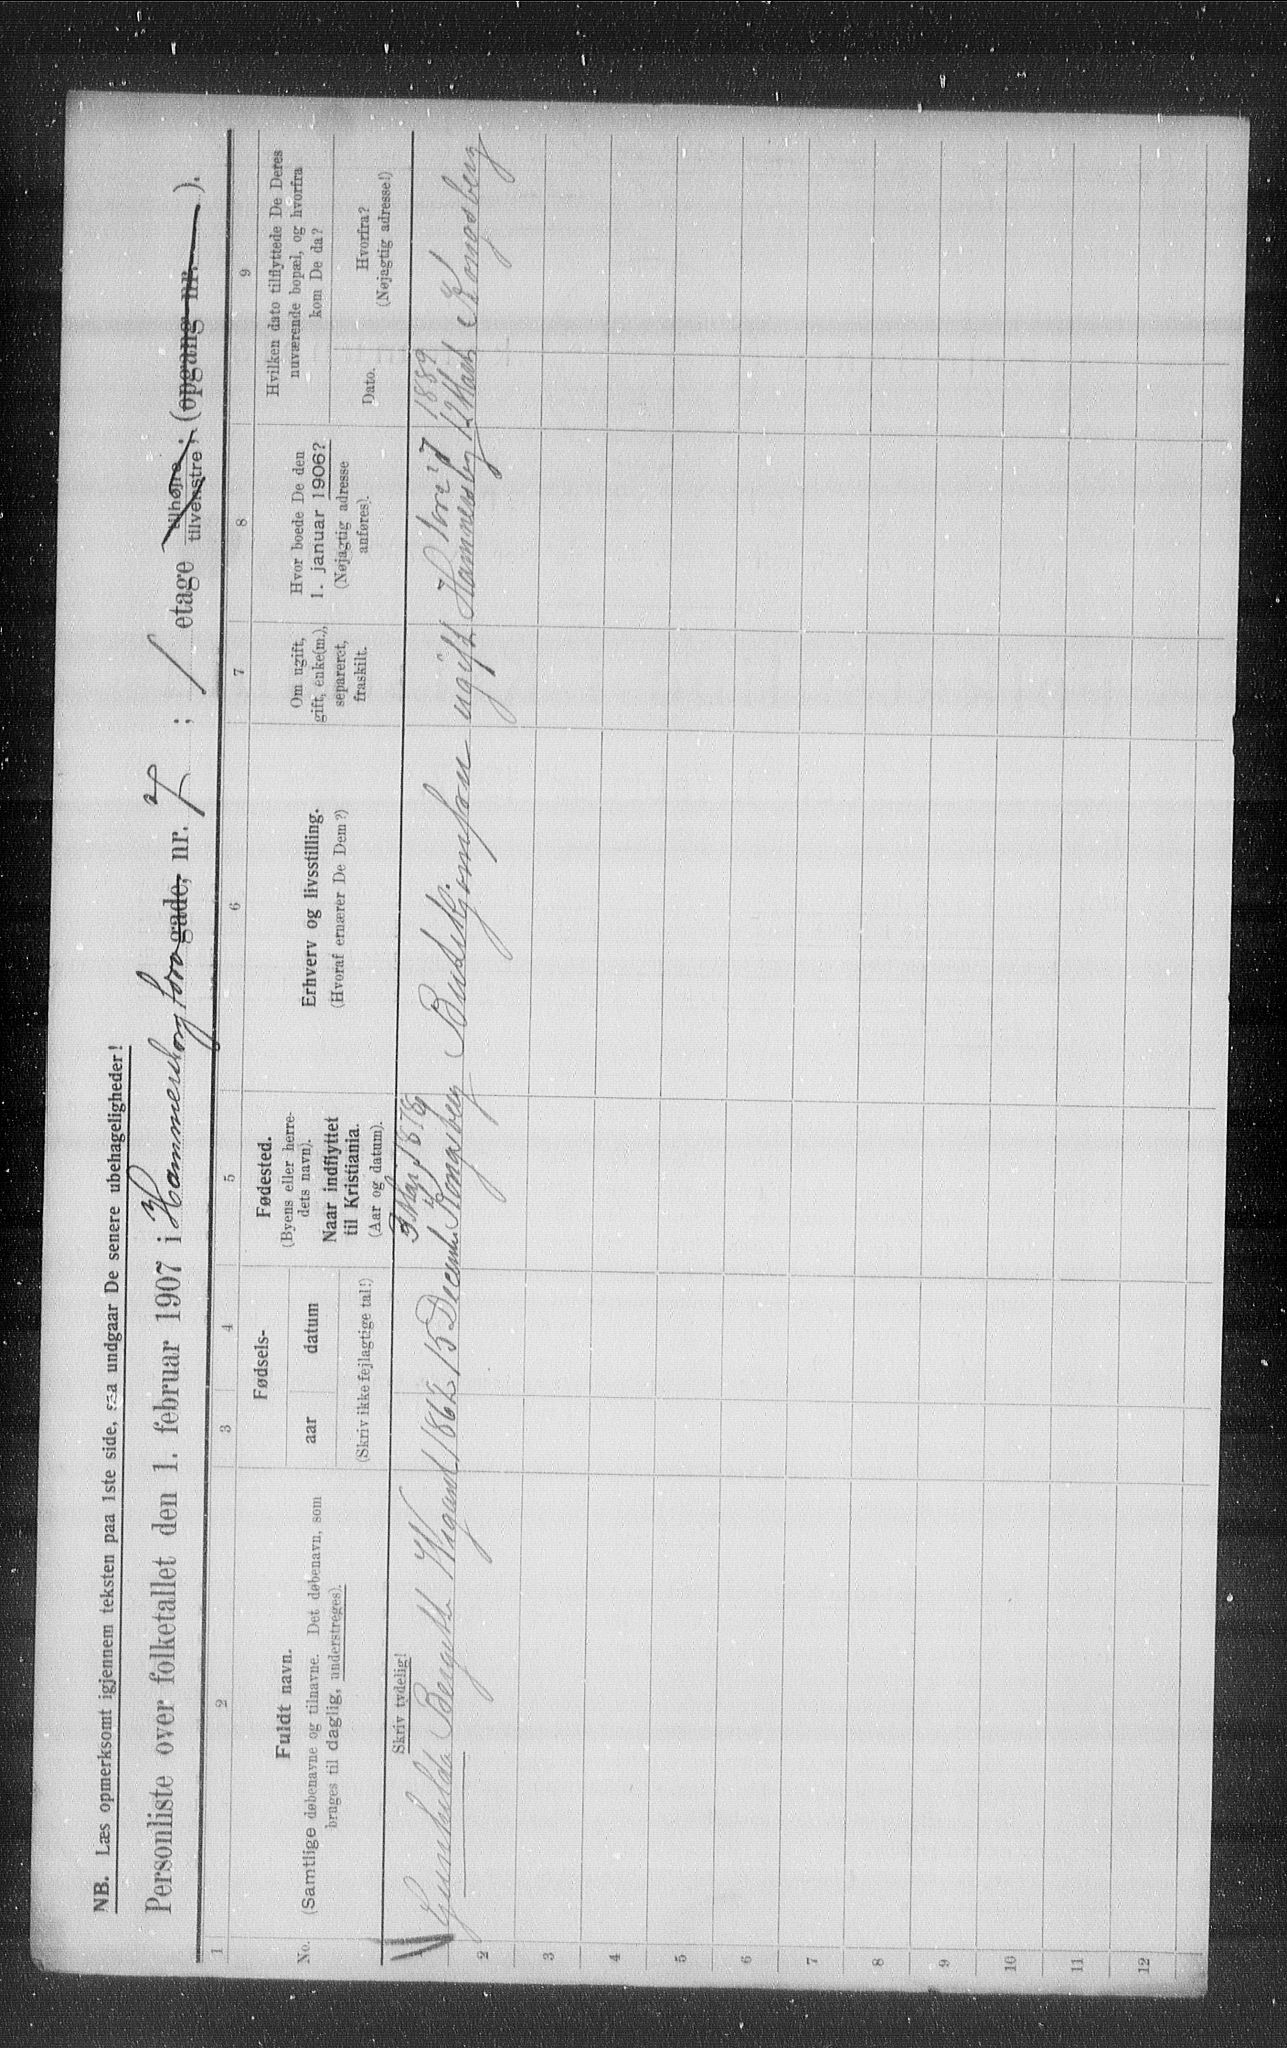 NB. Læs opmerksomt igjennem teksten paa 1ste side, saa undgaar De senere ubehageligheder!
Personliste over folketallet den 1. februar 1907 i Hammersborg torv gade, nr. 7 ; 1 etage tilhøire ; tilvenstre ; (opgang nr. ).
1
2
3
4
5
6
7
8
9
No.
Fuldt navn.
(Samtlige døbenavne og tilnavne. Det døbenavn, som
bruges til daglig, understreges).
Skriv tydelig!
Fødsels-
aar
datum
(Skriv ikke fejlagtige tal!)
Fødested.
(Byens eller herre-
dets navn).
Naar indflyttet
til Kristiania.
(Aar og datum).
Erhverv og livsstilling.
(Hvoraf ernærer De Dem?)
Om ugift,
gift, enke(m.),
separeret,
fraskilt.
Hvor boede De den
1. januar 1906?
(Nøjagtig adresse
anføres).
Hvilken dato tilflyttede De Deres
nuværende bopæl, og hvorfra
kom De da?
Dato.
Hvorfra?
(Nøjagtig adresse!)
Gunhilda Bergitte Wigant 1862 15 December Kongsberg ugift Kongsberg
1878
Torv 7
1889
2
3
4
5
6
7
8
9
10
11
12